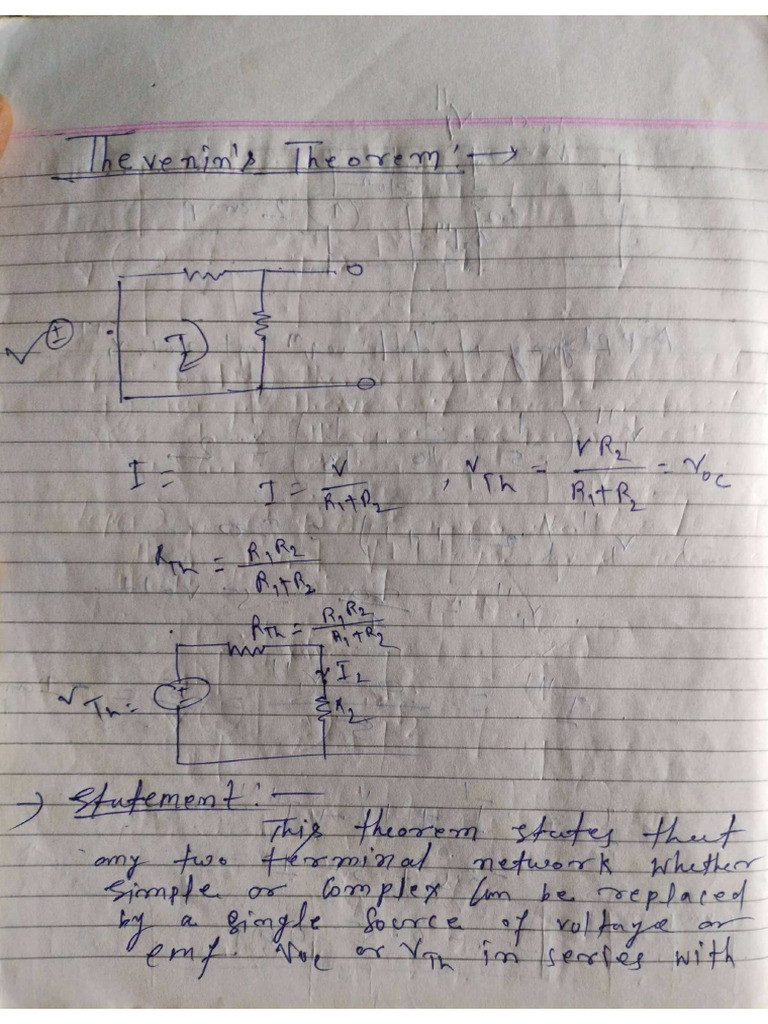 Thevenin's Theorem :→
V
±
I
I =
I = V / R1+R2 , VTh = V R2 / R1+R2 = Voc
RTh = R1R2 / R1+R2
RTh = R1R2 / R1+R2
VTh =
+
I2
R2
→ Statement : —
This theorem states that
any two terminal network whether
simple or complex can be replaced
by a single source of voltage or
emf. Voc or VTh in series with